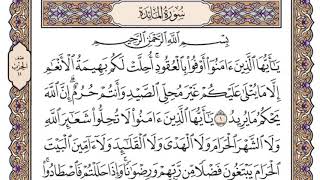 سُورَةُ المَائِدَةِ
بِسْمِ اللَّهِ الرَّحْمَٰنِ الرَّحِيمِ
يَٰٓأَيُّهَا الَّذِينَ ءَامَنُوٓا۟ أَوْفُوا۟ بِالْعُقُودِ ۚ أُحِلَّتْ لَكُم بَهِيمَةُ الْأَنْعَٰمِ
إِلَّا مَا يُتْلَىٰ عَلَيْكُمْ غَيْرَ مُحِلِّي الصَّيْدِ وَأَنتُمْ حُرُمٌ ۗ إِنَّ اللَّهَ
يَحْكُمُ مَا يُرِيدُ ١ يَٰٓأَيُّهَا الَّذِينَ ءَامَنُوا۟ لَا تُحِلُّوا۟ شَعَٰٓئِرَ اللَّهِ
وَلَا الشَّهْرَ الْحَرَامَ وَلَا الْهَدْيَ وَلَا الْقَلَٰٓئِدَ وَلَآ ءَآمِّينَ الْبَيْتَ
الْحَرَامَ يَبْتَغُونَ فَضْلًا مِّن رَّبِّهِمْ وَرِضْوَٰنًا ۚ وَإِذَا حَلَلْتُمْ فَاصْطَادُوا۟ ۚ